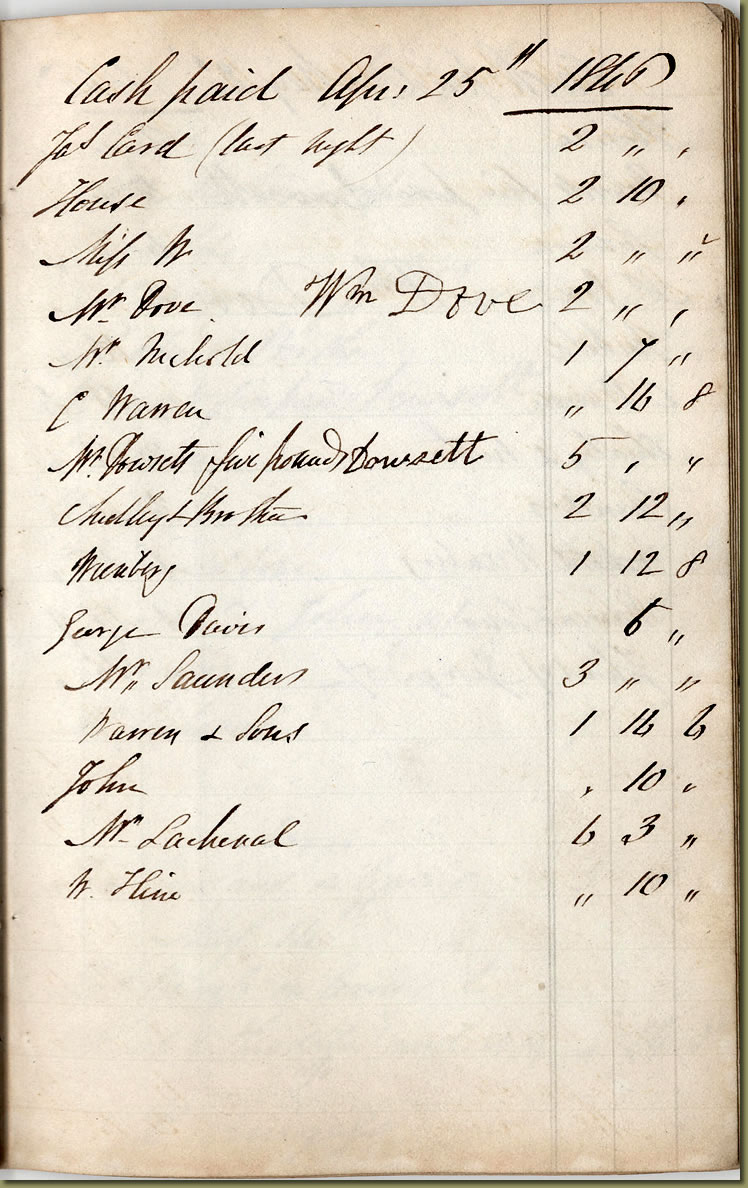 Cash paid Apr: 25th 1846
Jas Card (last night) 2 " "
House 2 10 "
Miss W 2 " "
Mr Dove Wm Dove 2 " "
Mr Nickold 1 7 "
C Warren " 16 8
Mr Dowsett five pounds Dowsett 5 " "
Chidley & Brother 2 12 "
1 12 8
George Davis 6 "
Mr Saunders 3 " "
Warren & Sons 1 16 6
John " 10 "
Mr Lachenal 6 3 "
W. Hine " 10 "